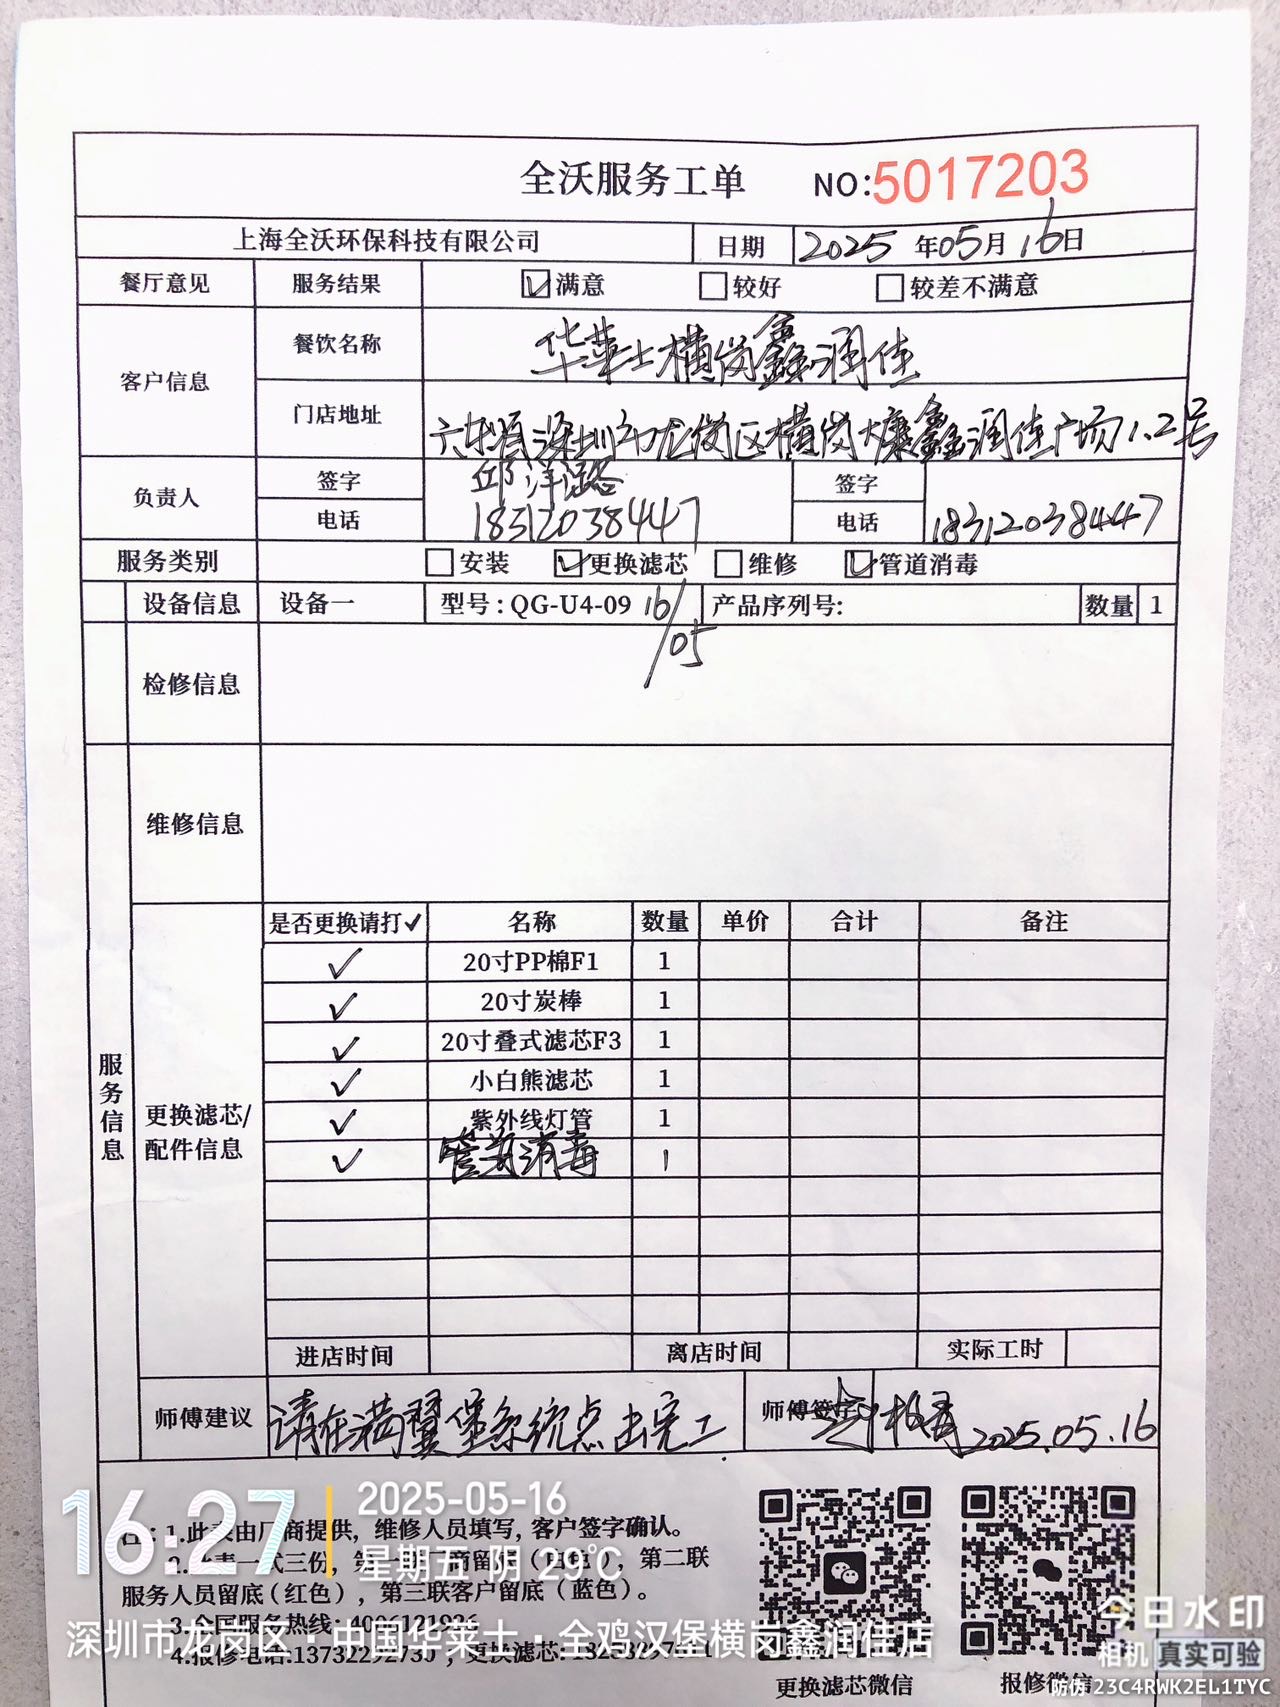 全沃服务工单 NO:5017203
上海全沃环保科技有限公司 日期 2025 年05月16日
餐厅意见 服务结果 ☑满意 □较好 □较差不满意
客户信息 餐饮名称 华莱士横岗鑫润佳
门店地址 广东省深圳市龙岗区横岗大康鑫润佳广场1.2号
负责人 签字 邱洋 签字
电话 18312038447 电话 18312038447
服务类别 □安装 ☑更换滤芯 □维修 ☑管道消毒
设备信息 设备一 型号:QG-U4-09 16/05 产品序列号: 数量 1
检修信息
维修信息
服务信息
更换滤芯/
配件信息
是否更换请打✓ 名称 数量 单价 合计 备注
✓ 20寸PP棉F1 1
✓ 20寸炭棒 1
✓ 20寸叠式滤芯F3 1
✓ 小白熊滤芯 1
✓ 紫外线灯管 1
✓ 管道消毒 1
进店时间 离店时间 实际工时
师傅建议 请在满翼堡系统点击完工. 师傅签字 2025.05.16
注:1.此表由厂商提供，维修人员填写，客户签字确认。
2.此表一式三份，第一联厂商留底（白色），第二联
服务人员留底（红色），第三联客户留底（蓝色）。
3.全国服务热线:4006121926
4.报修电话:13732292730 ；更换滤芯:
更换滤芯微信 报修微信
16:27 2025-05-16
星期五 阴 29℃
深圳市龙岗区·中国华莱士·全鸡汉堡横岗鑫润佳店
今日水印
相机 真实可验
防伪 23C4RWK2EL1TYC